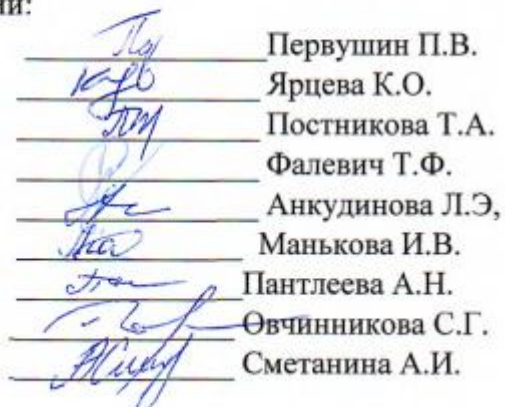 ии:
Первушин П.В.
Ярцева К.О.
Постникова Т.А.
Фалевич Т.Ф.
Анкудинова Л.Э,
Манькова И.В.
Пантлеева А.Н.
Овчинникова С.Г.
Сметанина А.И.